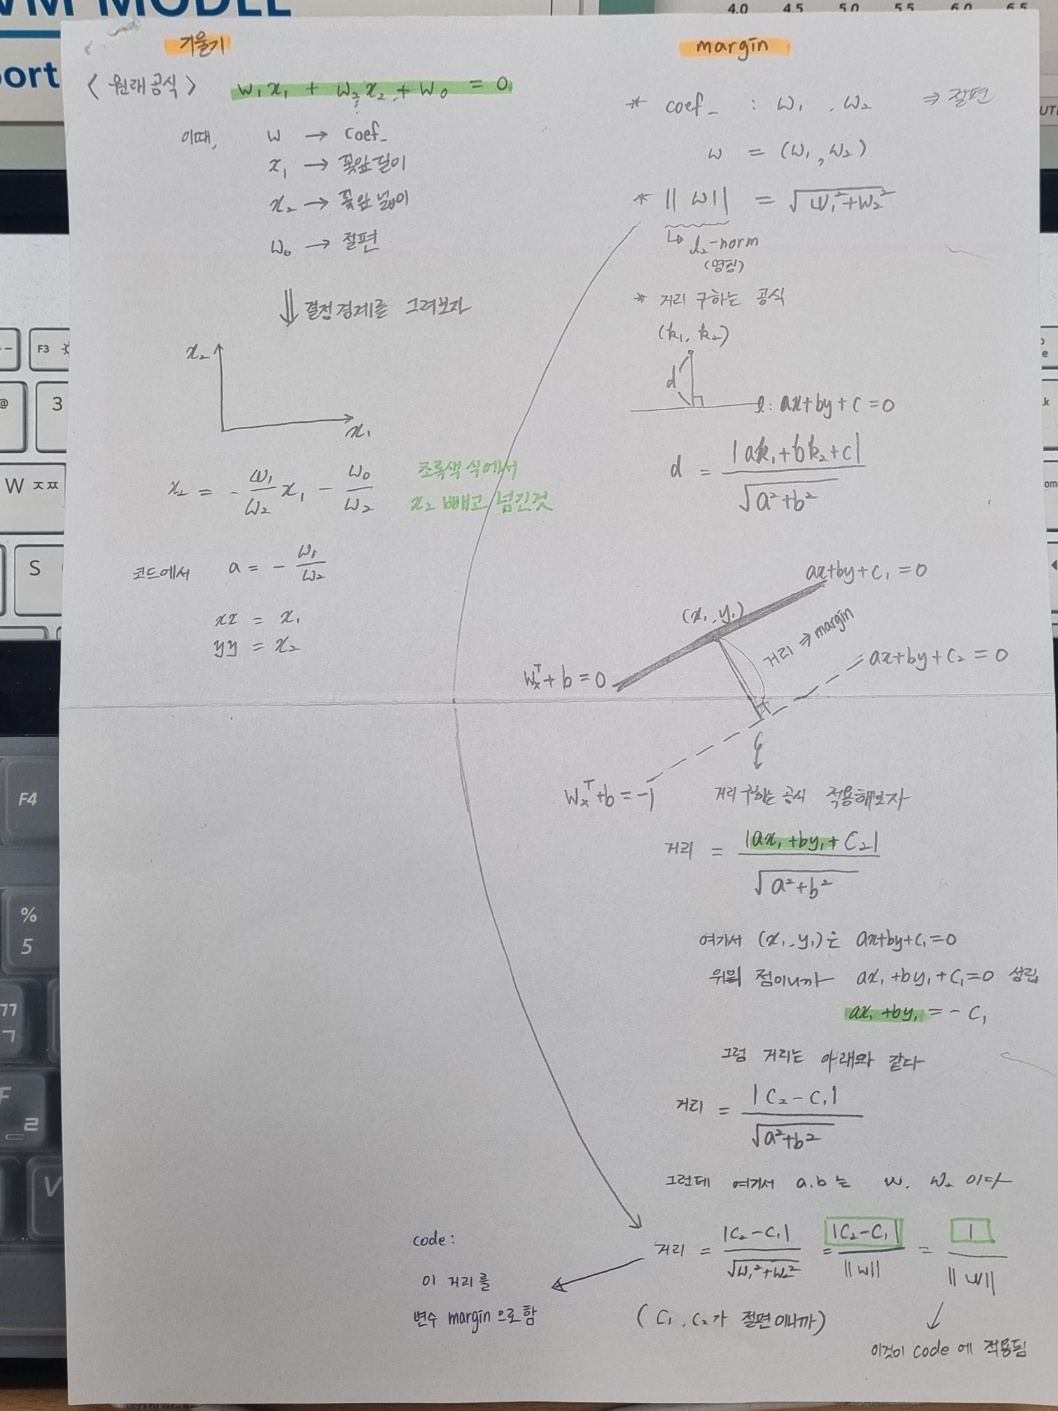 VM MODEL
port
4.0 4.5 5.0 5.5 6.0 6.5
기울기
< 원래 공식 > w₁x₁ + w₂x₂ + w₀ = 0
이때, w → coef_
x₁ → 꽃잎 길이
x₂ → 꽃잎 넓이
w₀ → 절편
⇓ 결정 경계를 그려보자
x₂
x₁
x₂ = - w₁/w₂ x₁ - w₀/w₂
초록색 식에서
x₂ 빼고 넘긴것
코드에서 a = - w₁/w₂
xx = x₁
yy = x₂
margin
* coef_ : w₁, w₂ ⇒ 절편
w = (w₁, w₂)
* ||w|| = √w₁²+w₂²
↳ l₂-norm
(명칭)
* 거리 구하는 공식
(k₁, k₂)
d
l: ax+by+c=0
d = |ak₁+bk₂+c| / √a²+b²
ax+by+c₁=0
(x₁, y₁)
거리 ⇒ margin
ax+by+c₂=0
wᵀx+b=0
wᵀx+b=-1
거리 구하는 공식 적용해보자
거리 = |ax₁+by₁+c₂| / √a²+b²
여기서 (x₁, y₁)는 ax+by+c₁=0
위의 점이니까 ax₁+by₁+c₁=0 성립
ax₁+by₁=-c₁
그럼 거리는 아래와 같다
거리 = |c₂-c₁| / √a²+b²
그런데 여기서 a,b는 w₁ w₂ 이다
거리 = |c₂-c₁| / √w₁²+w₂² = |c₂-c₁| / ||w|| = 1 / ||w||
(c₁, c₂가 절편이니까)
이것이 code에 적용됨
code:
이 거리를
변수 margin으로 함
F3
3
W ㅈㅉ
S
F4
%
5
ㄱ
F
ㄹ
V